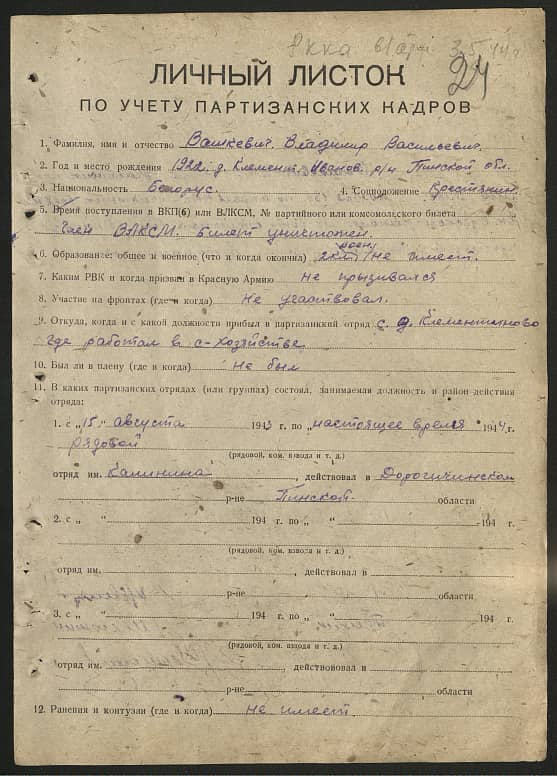 РККА 3.5.44 г
24
ЛИЧНЫЙ ЛИСТОК
ПО УЧЕТУ ПАРТИЗАНСКИХ КАДРОВ
1. Фамилия, имя и отчество Вашкевич Владимир Васильевич.
2. Год и место рождения 1922 д. Клемент. Иванов. р/н Пинской обл.
3. Национальность Белорус. 4. Соцположение Крестьянин
5. Время поступления в ВКП(б) или ВЛКСМ, № партийного или комсомольского билета
член ВЛКСМ. билет уничтожен.
6. Образование: общее и военное (что и когда окончил) 2кл / военн не имеет.
7. Каким РВК и когда призван в Красную Армию не призывался
8. Участие на фронтах (где и когда) не участвовал.
9. Откуда, когда и с какой должности прибыл в партизанский отряд с д. Клементиново
где работал в с-хозяйстве
10. Был ли в плену (где и когда) не был
11. В каких партизанских отрядах (или группах) состоял, занимаемая должность и район действия
отряда:
1. с „15„ августа 1943 г. по „настоящее время 1944 г.
рядовой
(рядовой, ком. взвода и т. д.)
отряд им. Калинина, действовал в Дорогичинском
р-не Пинской области
2. с „ “ 194 г. по „ “ 194 г.
(рядовой, ком. взвода и т. д.)
отряд им. , действовал в
р-не области
3. с „ “ 194 г. по „ “ 194 г.
(рядовой, ком. взвода и т. д.)
отряд им. , действовал в
р-не области
12. Ранения и контузии (где и когда) не имеет